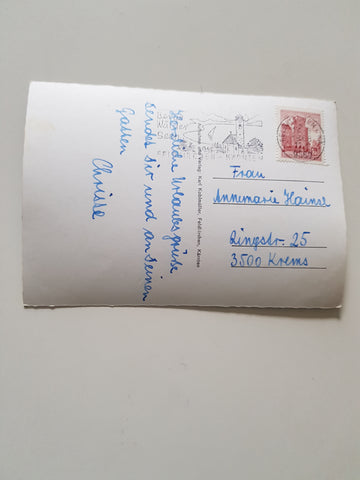 Herzliche Urlaubsgrüße
sendet Dir und an Deinen
Gatten
Chrissa
Aufnahme und Verlag: Karl Kublmüller, Feldkirchen, Kärnten
KÄRNTEN
Frau
Annemarie Hainzl
Ringstr. 25
3500 Krems